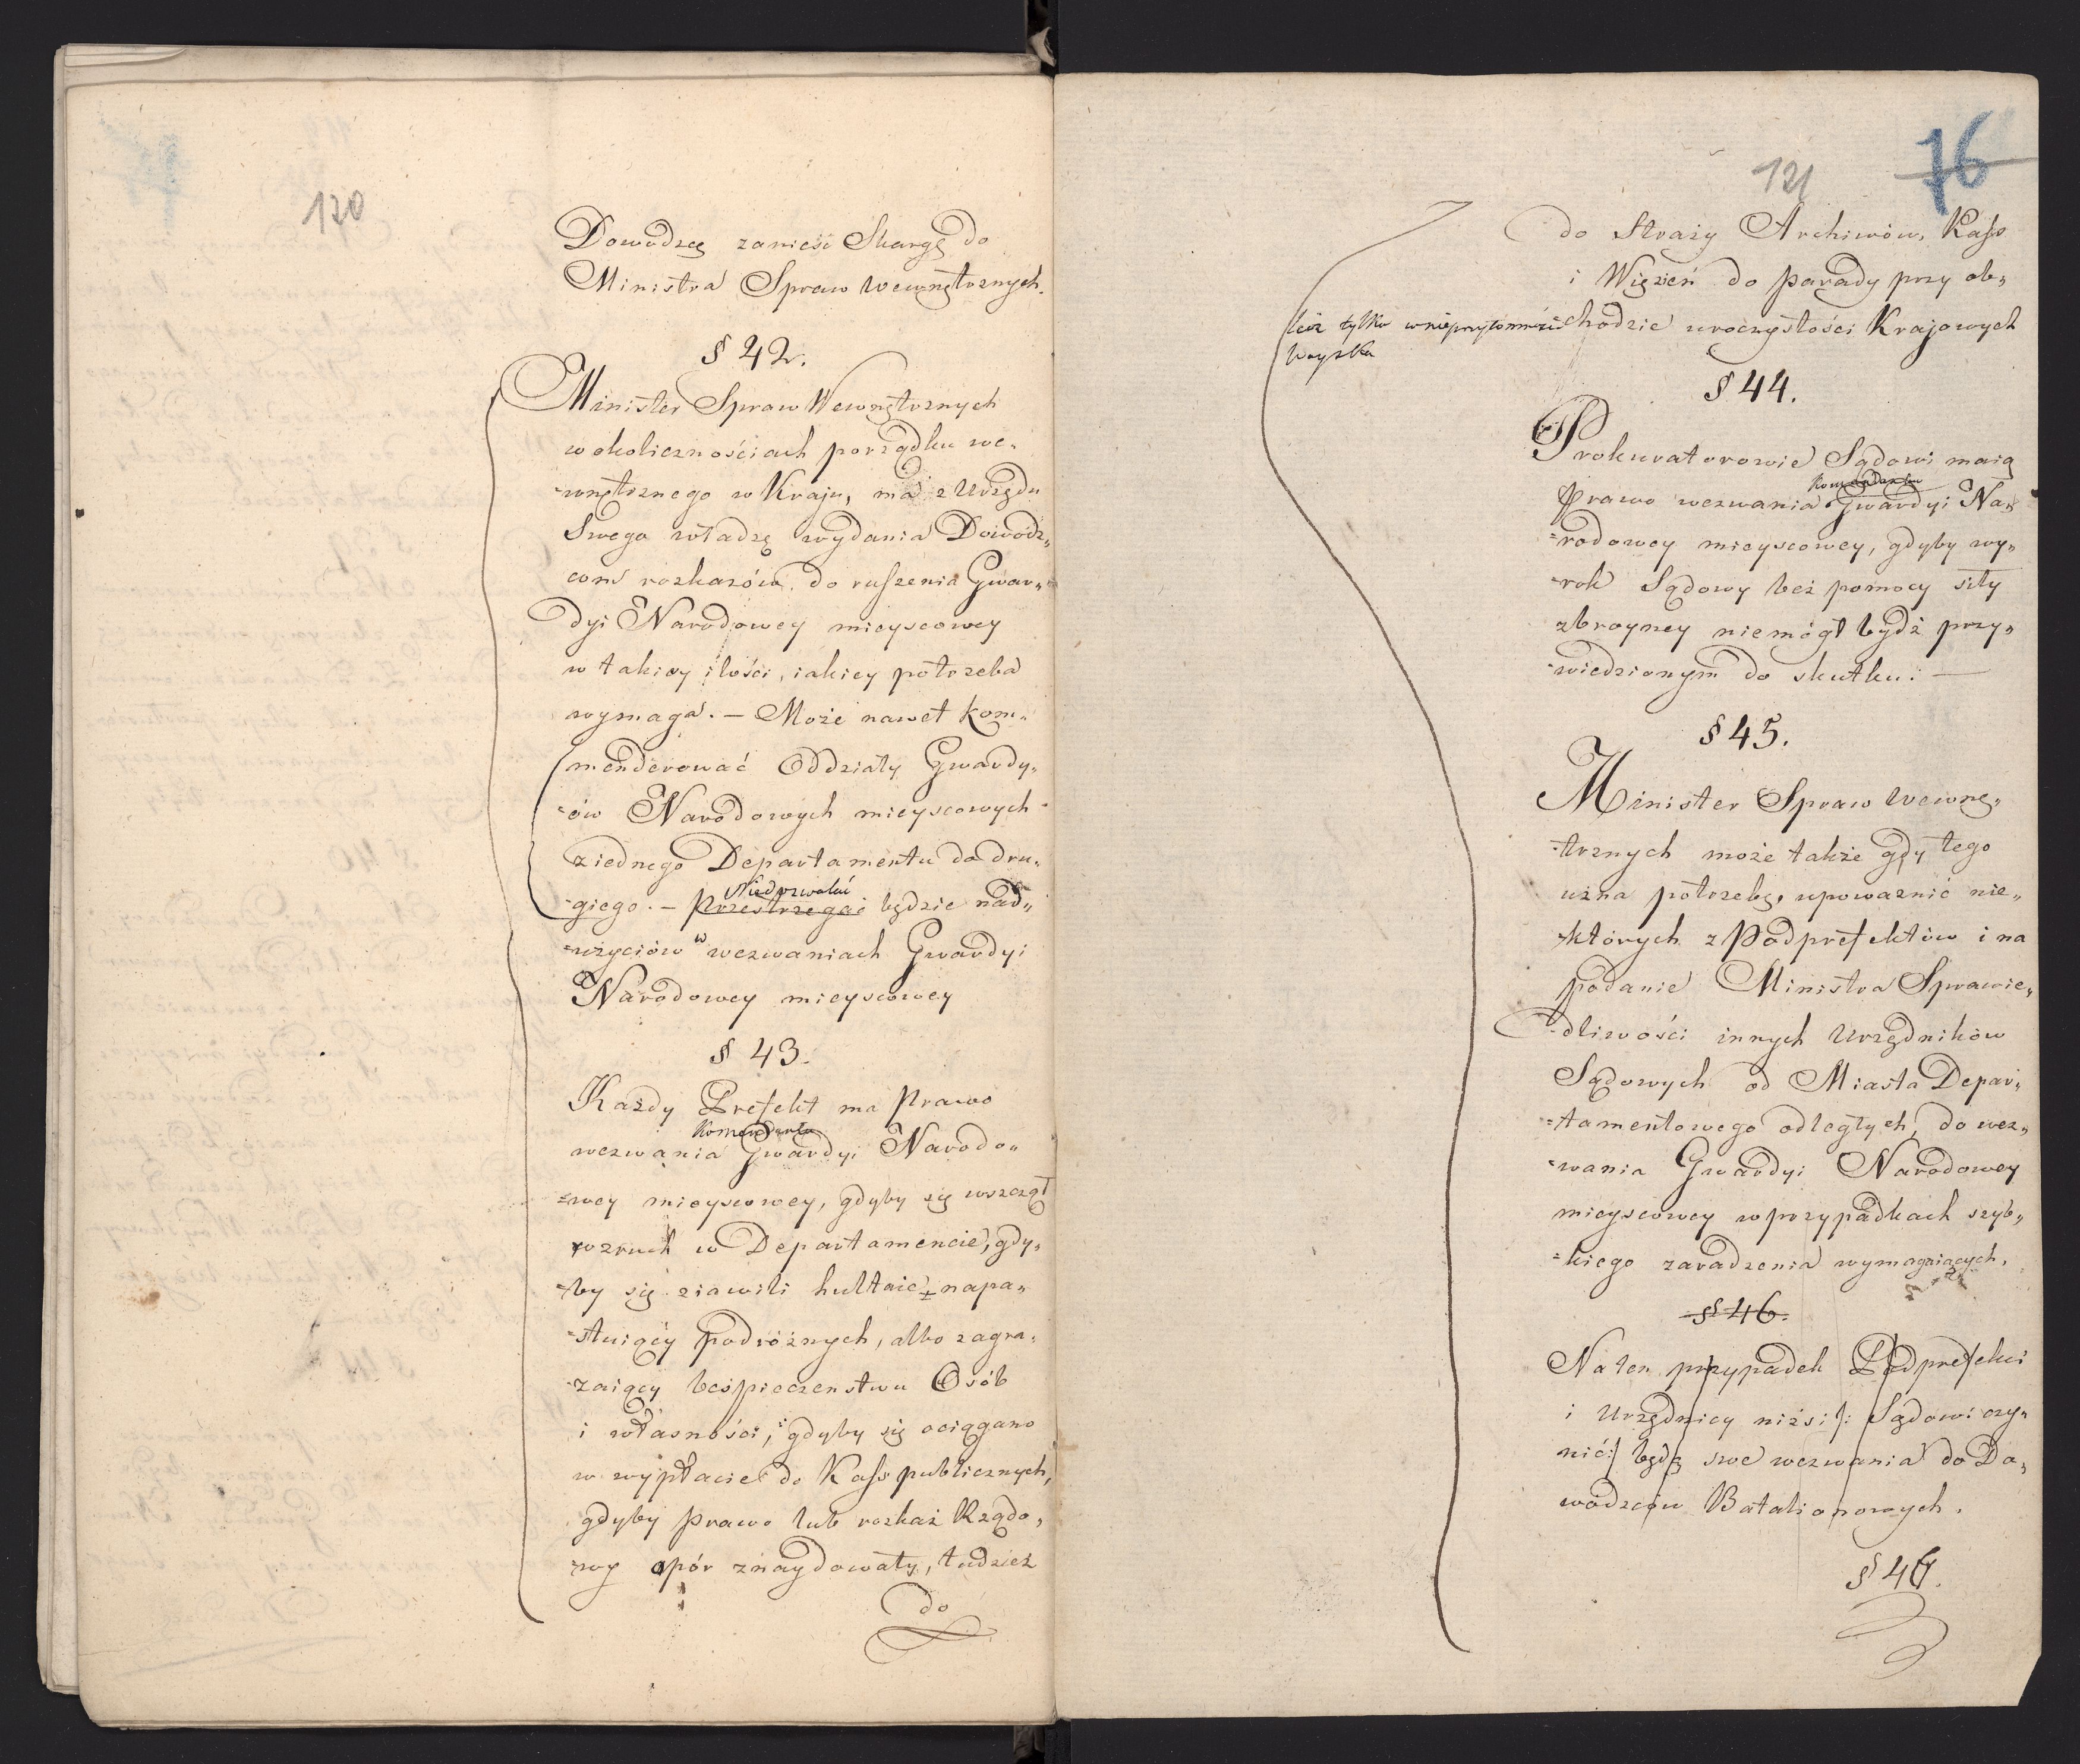 120
Dowodzcę zanieść Skargę do
Ministra Spraw Wewnętrznych.
§ 42.
Minister Spraw Wewnętrznych
w okolicznościach porządku we„
=wnętrznego w Kraju, ma z Urzędu
Swego władzę wydania Dowódz„
com rozkazów do ruszenia Gwar„
dyi Narodowey mieyscowey
w takiey ilości, iakiey potrzeba
wymaga. — Może nawet kom„
menderować Oddziały Gwardy„
=ów Narodowych mieyscowych
z iednego Departamentu do dru„
Niedozwalać
=giego. — Przestrzegać będzie nad„
=użyciów w wezwaniach Gwardyi
Narodowey mieyscowey
§ 43.
Każdy Prefekt ma Prawo
Komendanta
wezwania Gwardyi Narodo„
=wey mieyscowey, gdyby się wszczął
rozruch w Departamencie, gdy„
=by się ziawili hultaie napa„
=stuiący podróżnych, albo zagra„
=zaiący bespieczenstwu Osób
i własności, gdyby się ociągano
w wypłacie do Kass publicznych,
gdyby prawo lub rozkaz Rządo„
=wy opór znaydowały, tudzież
do
76
121
do Straży Archiwów, Kass
i Więzień do parady przy ob„
lecz tylko w nieprzytomności
woyska
=chodzie uroczystości Krajowych
§ 44.
Prokuratorowie Sądowi maią
Komendanta
prawo wezwania Gwardyi Na„
=rodowey mieyscowey, gdyby wy„
=rok Sądowy bez pomocy siły
zbroyney niemógł bydź przy„
=wiedzionym do skutku. —
§ 45.
Minister Spraw Wewnę„
=trznych może także gdy tego
uzna potrzebę, upoważnić nie„
=których z Podprefektów i na
podanie Ministra Sprawie„
=dliwości innych Urzędników
Sądowych od Miasta Depar„
=tamentowego odległych, do wez„
=wania Gwardyi Narodowey
mieyscowey w przypadkach szyb„
=kiego zaradzenia wymagaiących.
§ 46.
Na ten przypadek Podprefekci
i Urzędnicy niżsi /: Sądowi czy„
nić :/ będą swe wezwania do Do„
wódzców Batalionowych.
§ 46.